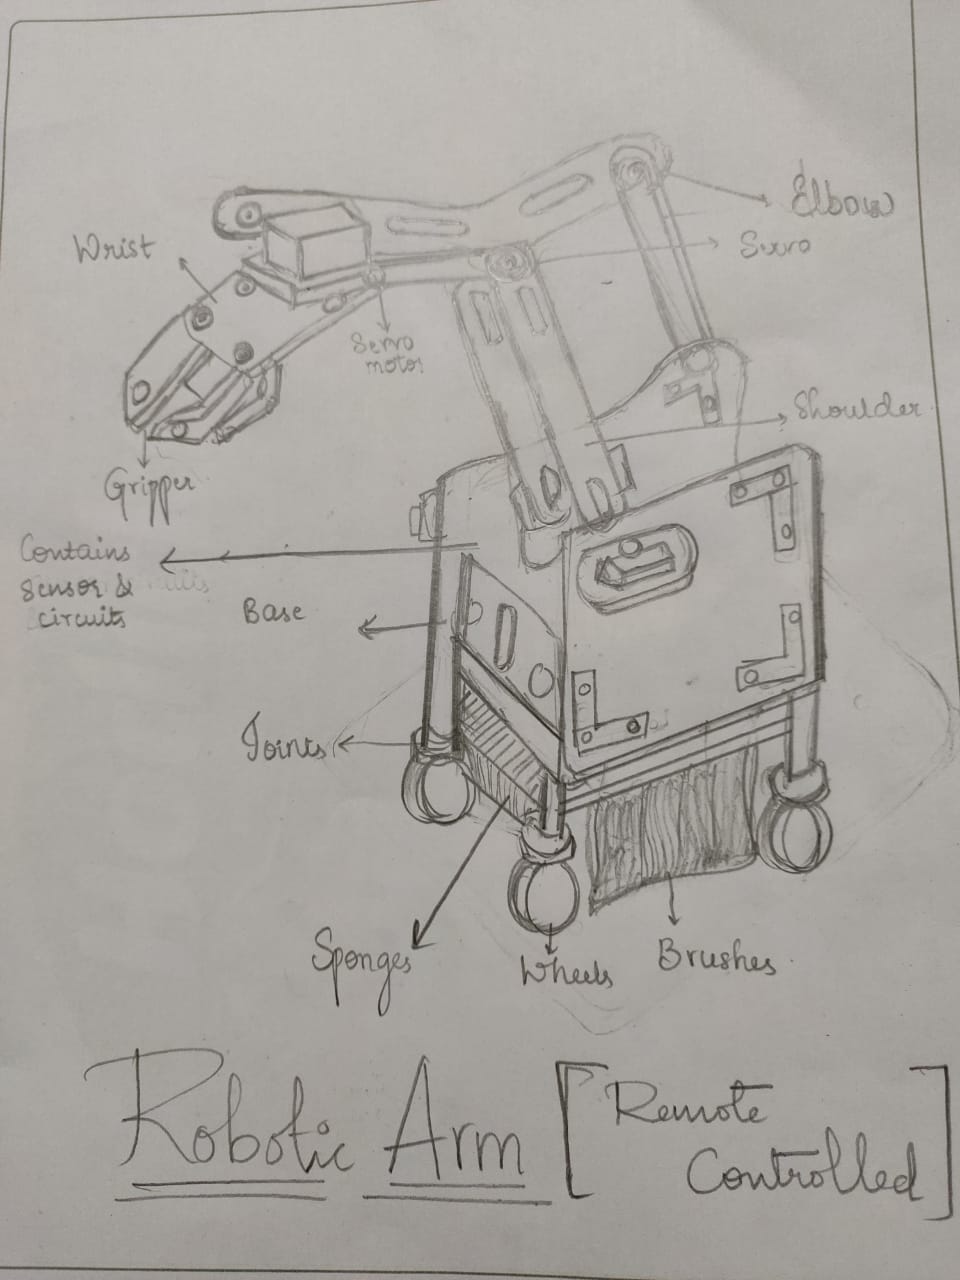 Elbow
Wrist
Servo
Servo
motor
Shoulder
Gripper
Contains
sensor &
circuits
Base
Joints
Sponges
Wheels
Brushes
Robotic Arm [Remote
Controlled]